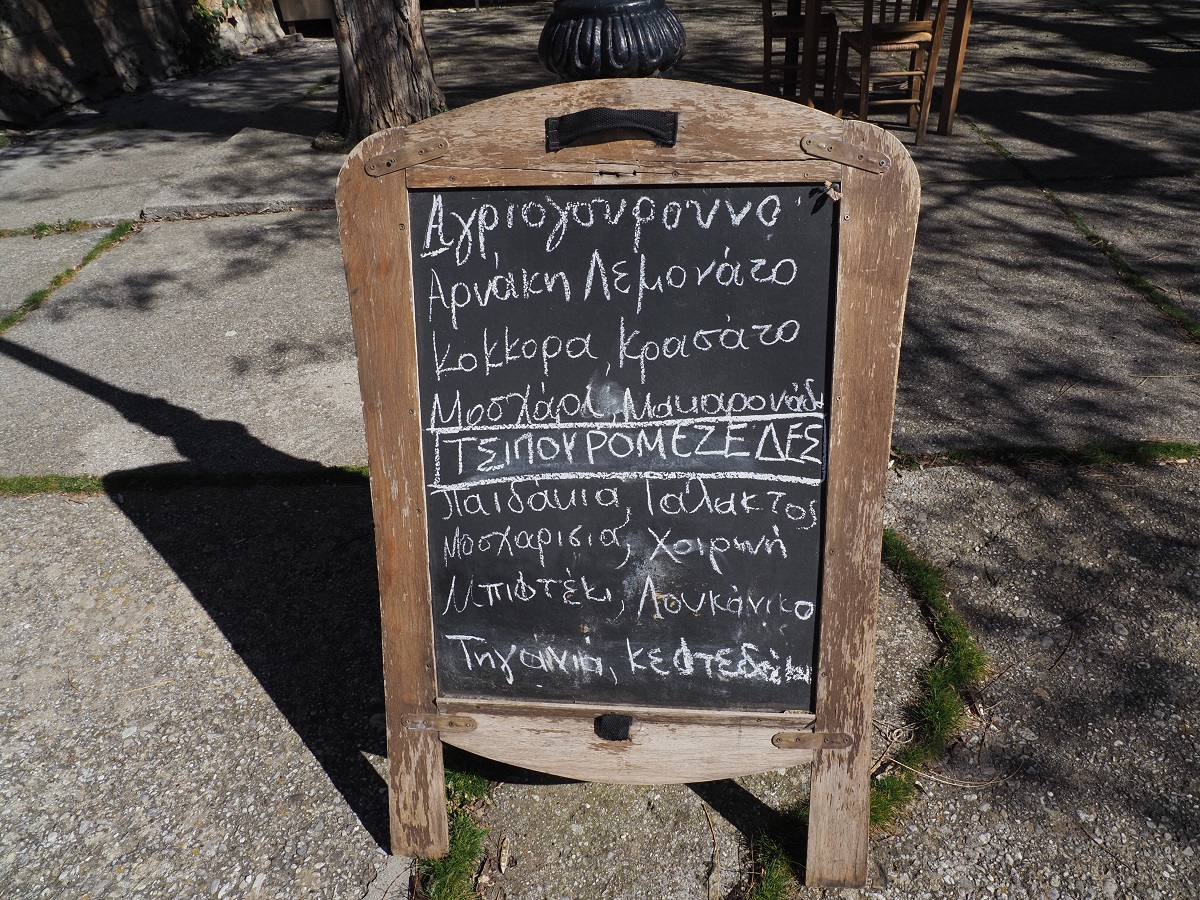 Αγριογουρουνο
Αρνάκη Λεμονάτο
Κοκκορα, κρασάτο
Μοσχάρι, Μακαρονάδα
ΤΣΙΠΟΥΡΟΜΕΖΕΔΕΣ
Παιδάκια, Γάλακτος
Μοσχαρισια, Χοιρινή
Μπιφτέκι, Λουκάνικο
Τηγάνιά, κεφτεδάκι